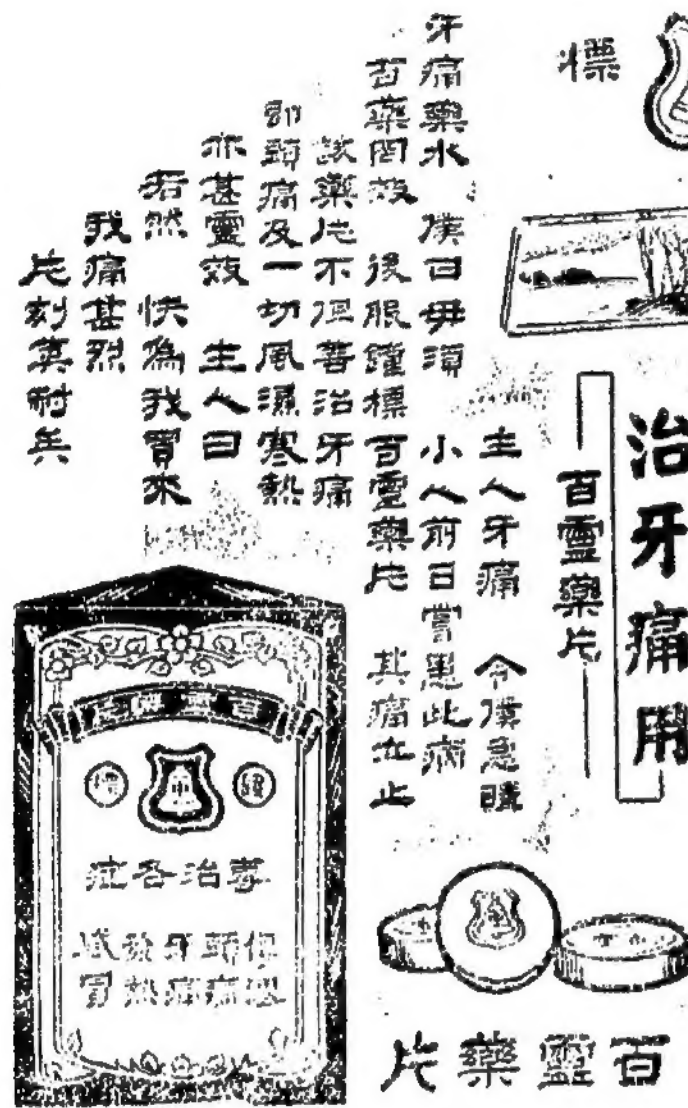 標
治牙痛用
百靈藥片
主人牙痛 令僕急購
牙痛藥水 僕曰毋須 小人前日嘗患此病
百藥罔效 後服鐘標百靈藥片 其痛立止
該藥片不但善治牙痛
即頭痛及一切風濕寒熱
亦甚靈效 主人曰
若然 快為我買來
我痛甚烈
片刻莫耐矣
鐘標
專治各症
傷頭牙發感
風痛痛熱冒
百靈藥片